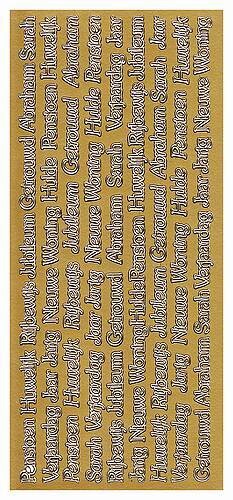 Pensioen Huwelijk Rijbewijs Jubileum Getrouwd Abraham Sarah
Verjaardag Jaar Jarig Nieuwe Woning Hulde Pensioen Huwelijk
Pensioen Huwelijk Rijbewijs Jubileum Getrouwd Abraham
Sarah Verjaardag Jaar Jarig Nieuwe Woning Hulde Pensioen
Rijbewijs Jubileum Getrouwd Abraham Sarah Verjaardag Jaar
Jarig Nieuwe Woning Hulde Pensioen Huwelijk Rijbewijs Jubileum
Huwelijk Rijbewijs Jubileum Getrouwd Abraham Sarah Jaar
Verjaardag Jaar Jarig Nieuwe Woning Pensioen Huwelijk
Getrouwd Abraham Sarah Verjaardag Jaar Jarig Nieuwe Woning